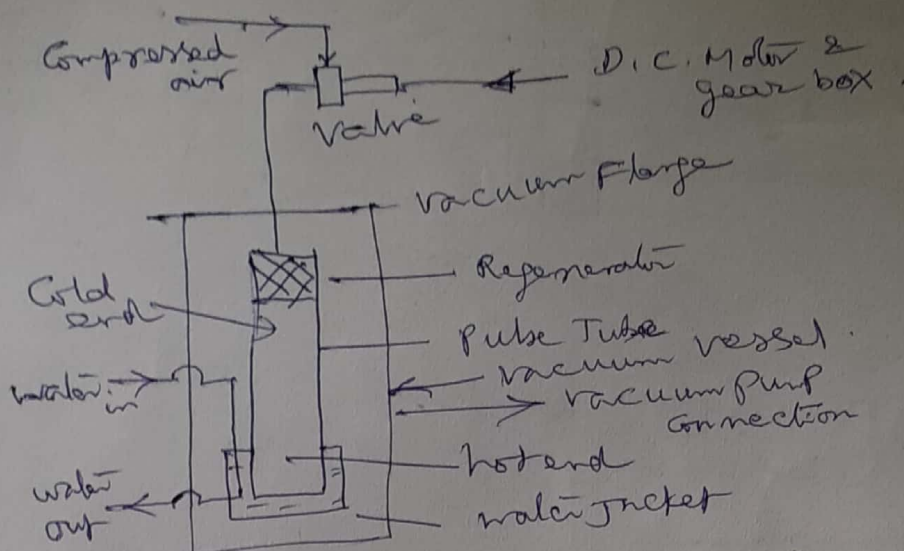 Compressed
air
D.C. Motor &
gear box.
Valve
Vacuum Flange
Regenerator
Cold
end
Pulse Tube
vacuum vessel.
water
in
vacuum pump
connection
hot end
water
out
water Jacket